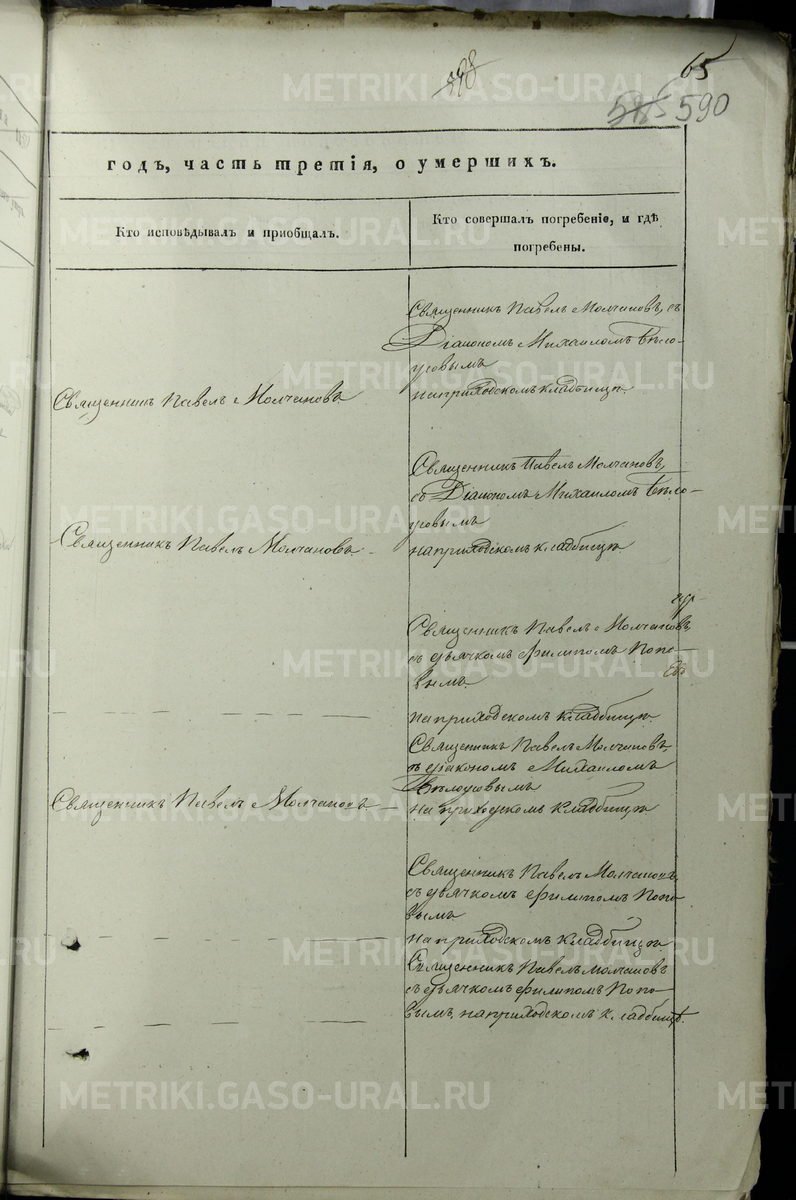 398
65
585 590
годъ, часть третія, о умершихъ.
Кто исповѣдывалъ и пріобщалъ.
Кто совершалъ погребеніе, и гдѣ
погребены.
Священникъ Павелъ Молчановъ, съ
Діакономъ Михаиломъ Бѣло-
усовымъ
на приходскомъ кладбищѣ.
Священникъ Павелъ Молчановъ.
Священникъ Павелъ Молчановъ,
съ Діакономъ Михаиломъ Бѣло-
усовымъ
на приходскомъ кладбищѣ.
Священникъ Павелъ Молчановъ.
Священникъ Павелъ Молчановъ
съ дьячкомъ Филипомъ Попо-
вымъ
на приходскомъ кладбищѣ.
Священникъ Павелъ Молчановъ
съ діакономъ Михаиломъ
Бѣлоусовымъ
на приходскомъ кладбищѣ
Священникъ Павелъ Молчановъ
Священникъ Павелъ Молчановъ
съ дьячкомъ Филипомъ Попо-
вымъ
на приходскомъ кладбищѣ
Священникъ Павелъ Молчановъ
съ дьячкомъ Филипомъ Попо-
вымъ, на приходскомъ кладбищѣ.
METRIKI.GASO-URAL.RU